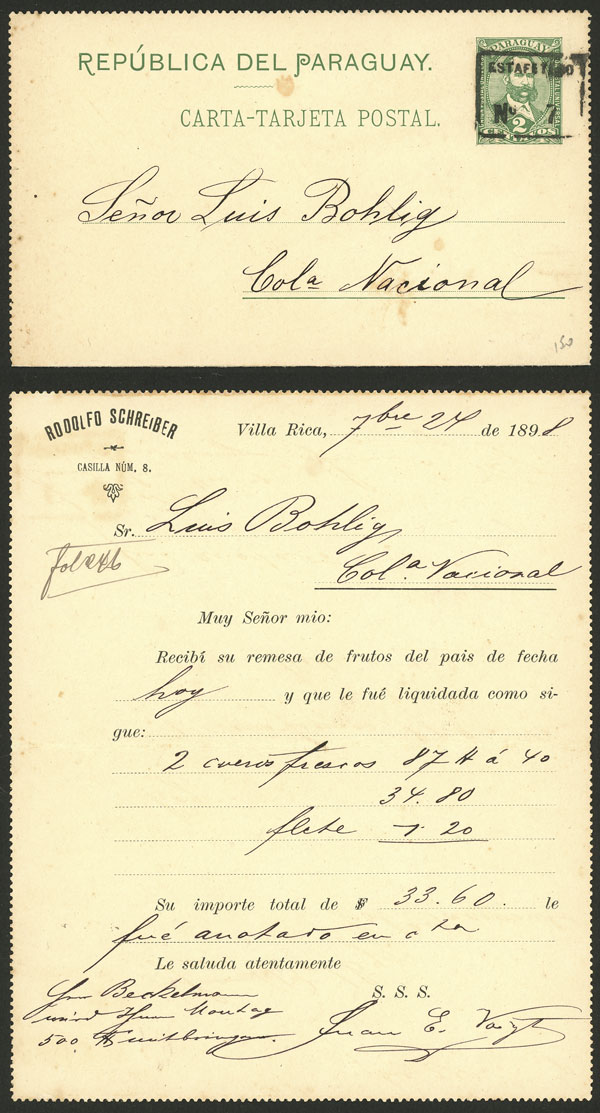 REPÚBLICA DEL PARAGUAY.
CARTA-TARJETA POSTAL.
PARAGUAY
2
ESTAFETA
No 7
Señor Luis Bohlig
Cola Nacional
150
RODOLFO SCHREIBER
CASILLA NÚM. 8.
Villa Rica, 7bre 24 de 1898
Sr. Luis Bohlig
Cola Nacional
Muy Señor mio:
Recibí su remesa de frutos del pais de fecha
hoy y que le fué liquidada como si-
gue:
2 cueros frescos 87 à 40
34.80
flete 1.20
Su importe total de $ 33.60. le
fué anotado en cta
Le saluda atentamente
S. S. S.
Beckelmann
wird Montag
500
Juan E. Voigt